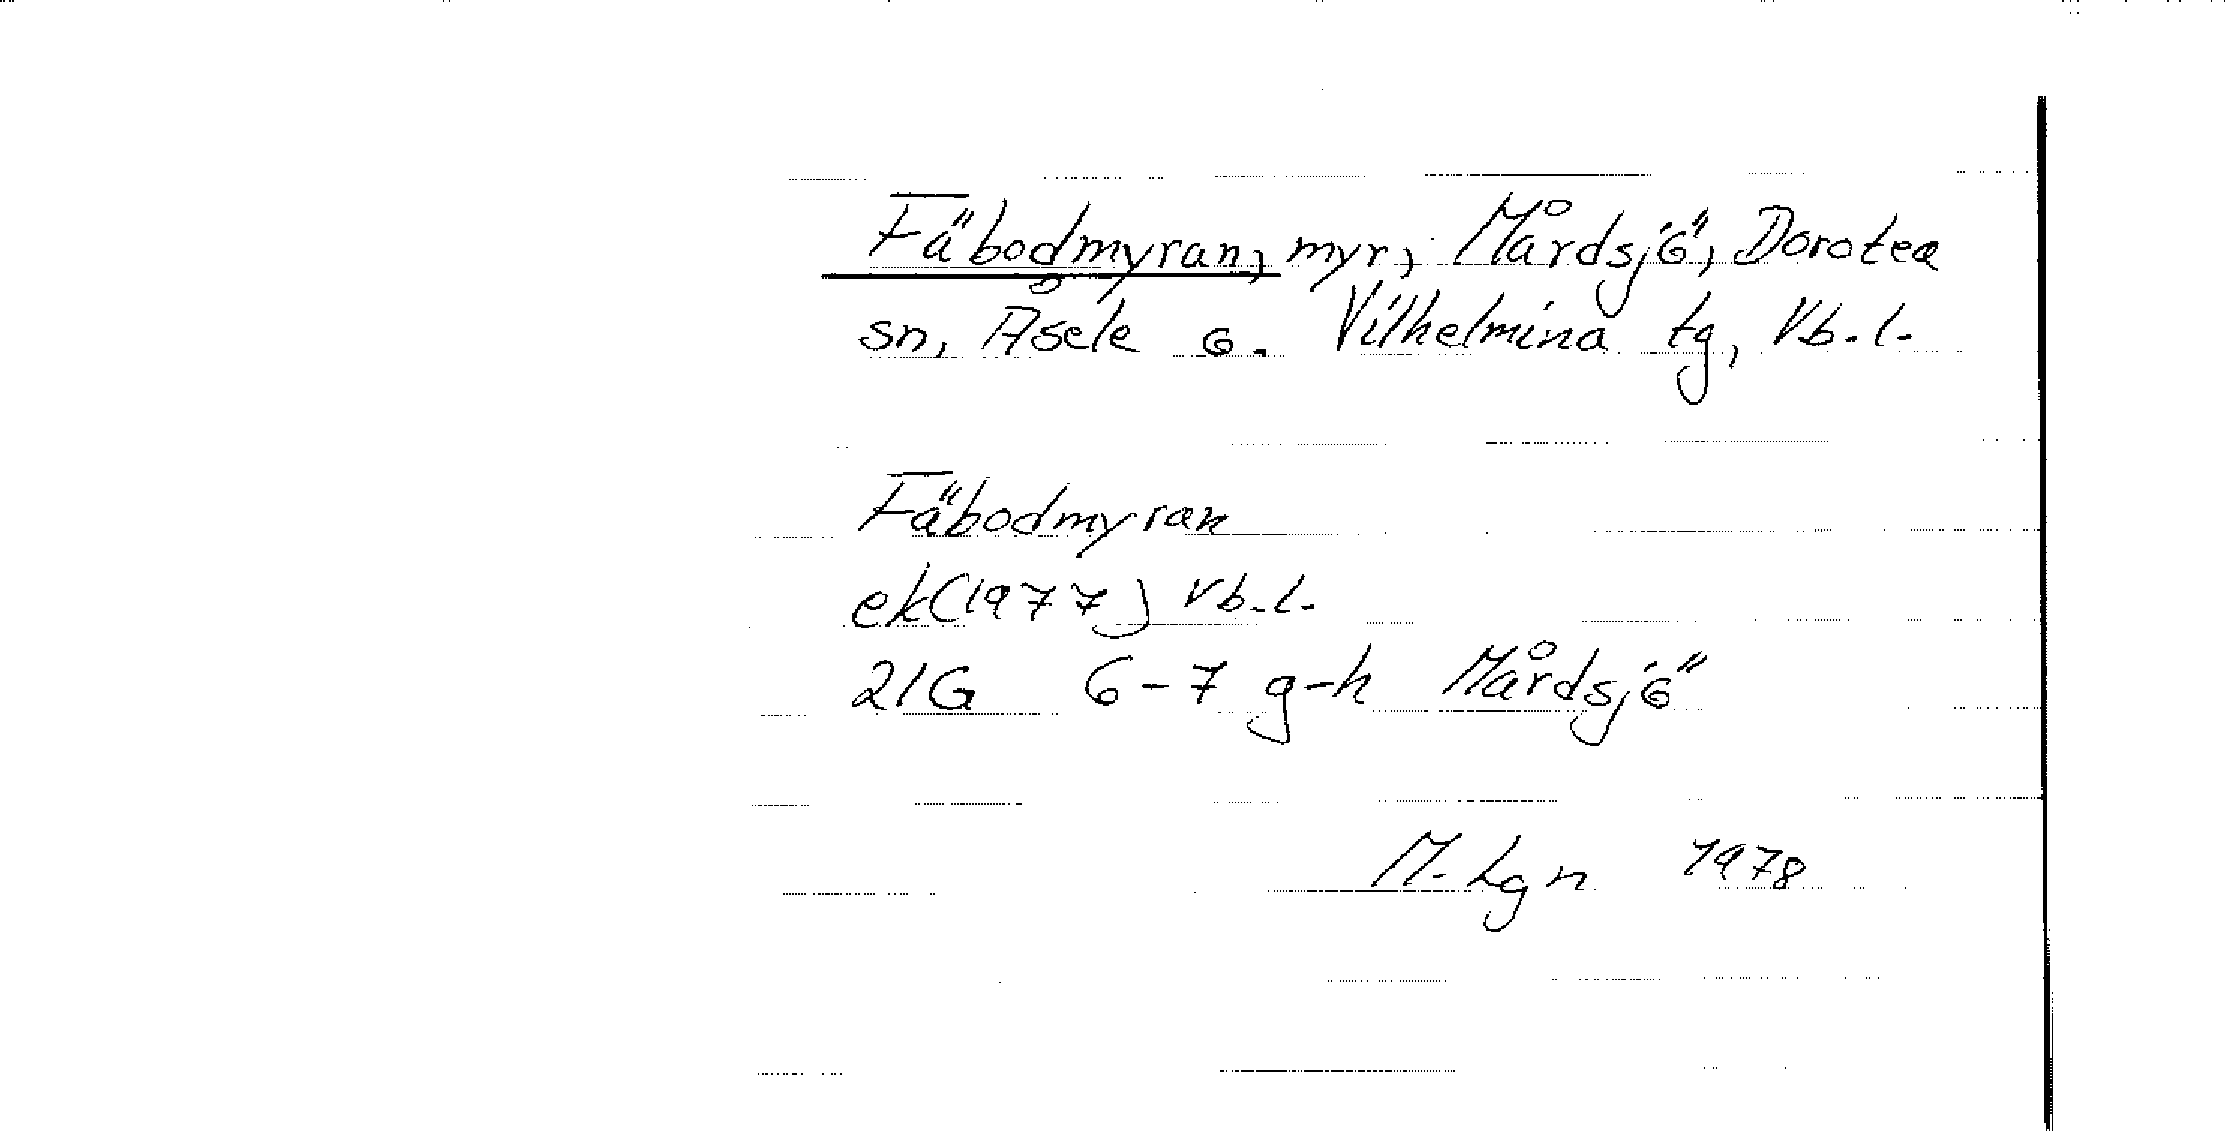 Fäbodmyran, myr, Mårdsjö, Dorotea
sn, Åsele o. Vilhelmina tg, Vb. l.
Fäbodmyran
ek(1977) Vb. l.
21G 6-7 g-h Mårdsjö
M. Lgn 1978